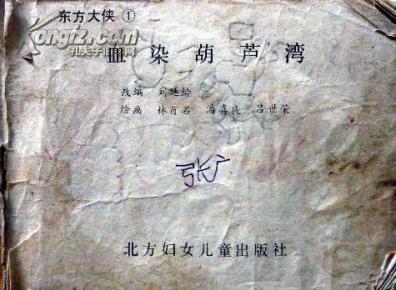 东方大侠①
kongfz.com
孔夫子旧书网
血染葫芦湾
改编 刘延龄
绘画 林百石 潘喜良 吕世荣
张广
北方妇女儿童出版社